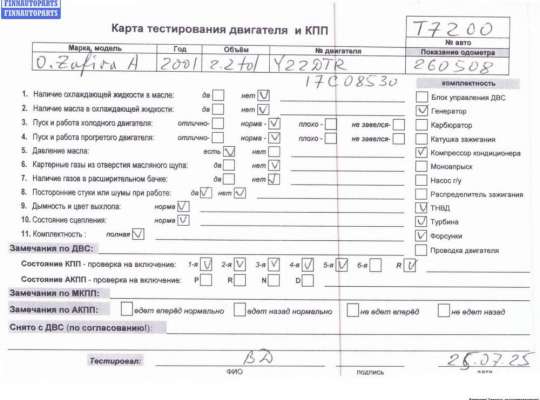 FINNAUTOPARTS
FINNAUTOPARTS
Карта тестирования двигателя и КПП
T7200
№ авто
Марка, модель Год Объём № двигателя Показание одометра
O. Zafira A 2001 2.2tdi Y22DTR 260508
17C08530
комплектность
1. Наличие охлаждающей жидкости в масле: да нет V
2. Наличие масла в охлаждающей жидкости: да нет V
3. Пуск и работа холодного двигателя: отлично- норма - V плохо - не завелся-
4. Пуск и работа прогретого двигателя: отлично- норма - V плохо - не завелся-
5. Давление масла: есть V нет
6. Картерные газы из отверстия масляного щупа: да нет V
7. Наличие газов в расширительном бачке: да нет V
8. Посторонние стуки или шумы при работе: да V нет V
9. Дымность и цвет выхлопа: норма V
10. Состояние сцепления: норма V
11. Комплектность : полная V
Блок управления ДВС
V Генератор
Карбюратор
Катушка зажигания
V Компрессор кондиционера
Моновпрыск
Насос г/у
Распределитель зажигания
V ТНВД
V Турбина
V Форсунки
Проводка двигателя
Замечания по ДВС:
Состояние КПП - проверка на включение: 1-я V 2-я V 3-я V 4-я V 5-я V 6-я R V
Состояние АКПП - проверка на включение: P R N D
Замечания по МКПП:
Замечания по АКПП: едет вперед нормально едет назад нормально не едет вперёд не едет назад
Снято с ДВС (по согласованию!):
Тестировал: ВД 25.07.25
ФИО подпись дата